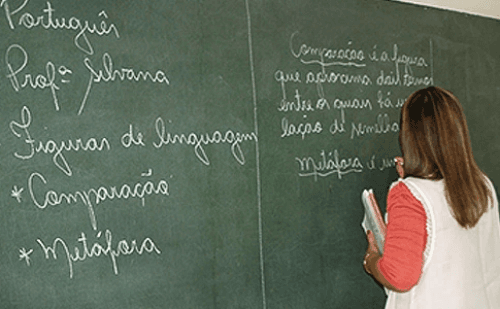 Português
Profª Silvana
Figuras de linguagem
* Comparação
* Metáfora
Comparação é a figura
que aproxima dois termos
entre os quais há
lação de semelha
Metáfora é